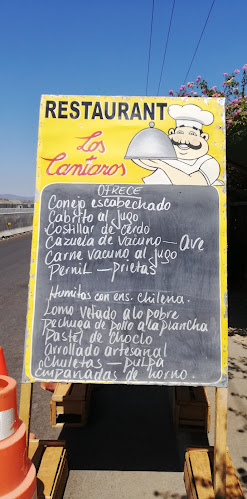 RESTAURANT
Los
Cantaros
OFRECE
Conejo escabechado
Cabrito al jugo
Costillar de cerdo
Cazuela de vacuno - Ave
Carne vacuno al jugo
Pernil - prietas
Humitas con ens. chilena.
Lomo vetado a lo pobre
Pechuga de pollo a la plancha
Pastel de choclo
Arrollado artesanal
Chuletas - pulpa
Empanadas de horno.